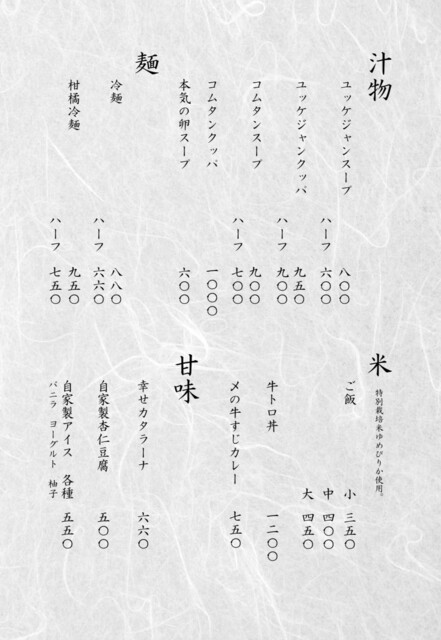 汁物
ユッケジャンスープ 八〇〇
ハーフ 六〇〇
ユッケジャンクッパ 九五〇
ハーフ 九〇〇
コムタンスープ 九〇〇
ハーフ 七〇〇
コムタンクッパ 一〇〇〇
本気の卵スープ 六〇〇
麺
冷麺 八八〇
ハーフ 六六〇
柑橘冷麺 九五〇
ハーフ 七五〇
米
特別栽培米ゆめぴりか使用。
ご飯 小 三五〇
中 四〇〇
大 四五〇
牛トロ丼 一二〇〇
〆の牛すじカレー 七五〇
甘味
幸せカタラーナ 六六〇
自家製杏仁豆腐 五〇〇
自家製アイス 各種 五五〇
バニラ ヨーグルト 柚子